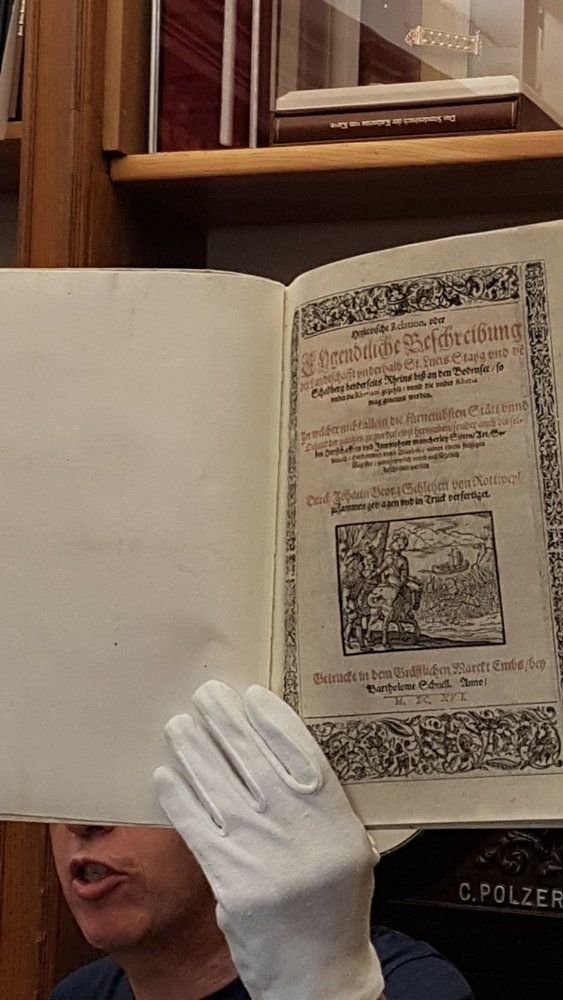 Das Stundenbuch der Katharina von Kleve
Historische Relation, oder
Eygendtliche Beschreibung
der Landtschafft underhalb St. Lucis Stayg und dē
Schallberg beyderseits Rheins biß an den Bodensee / so
under die Rhetiam gezehlt / unnd die under Rhetia
mag genennt werden.
In welcher nicht allein die fürnembsten Stätt unnd
Durch Johann Georg Schlehen von Rottweyl
zusammen getragen und in Truck verfertiget.
Getruckt in dem Gräfflichen Marckt Embs / bey
Bartholome Schnell. Anno /
M. DC. XVI.
C. POLZER